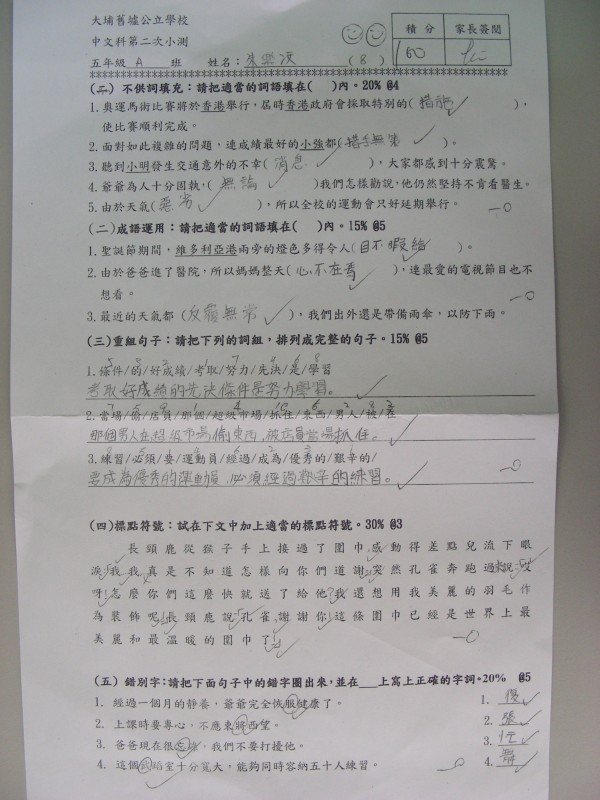 大埔舊墟公立學校
中文科第二次小測
積分 家長簽閱
五年級 A 班 姓名: (8) 100
(一) 不供詞填充:請把適當的詞語填在( )內。20% @4
1. 奧運馬術比賽將於香港舉行,屆時香港政府會採取特別的( 措施 ),
使比賽順利完成。
2. 面對如此複雜的問題,連成績最好的小強都( 措手無策 )。
3. 聽到小明發生交通意外的不幸( 消息 ),大家都感到十分震驚。
4. 爺爺為人十分固執,( 無論 )我們怎樣勸說,他仍然堅持不肯看醫生。
5. 由於天氣( 惡劣 ),所以全校的運動會只好延期舉行。 -0
(二) 成語運用:請把適當的詞語填在( )內。15% @5
1. 聖誕節期間,維多利亞港兩旁的燈色多得令人( 目不暇給 )。
2. 由於爸爸進了醫院,所以媽媽整天( 心不在焉 ),連最愛的電視節目也不
想看。 -0
3. 最近的天氣都( 反覆無常 ),我們出外還是帶備雨傘,以防下雨。
(三) 重組句子:請把下列的詞組,排列成完整的句子。15% @5
1. 條件/的/好成績/考取/努力/先決/是/學習
考取好成績的先決條件是努力學習。
2. 當場/偷/店員/那個/超級市場/抓住/東西/男人/被/在
那個男人在超級市場偷東西,被店員當場抓住。
3. 練習/必須/要/運動員/經過/成為/優秀的/艱辛的/ -0
要成為優秀的運動員,必須經過艱辛的練習。
(四) 標點符號:試在下文中加上適當的標點符號。30% @3
長頸鹿從猴子手上接過了圍巾,感動得差點兒流下眼
淚:「我我真是不知道怎樣向你們道謝!」突然孔雀奔跑過來說:「哎
呀!怎麼你們這麼快就送了給他?我還想用我美麗的羽毛作
為裝飾呢!」長頸鹿說:「孔雀,謝謝你!這條圍巾已經是世界上最
美麗和最溫暖的圍巾了!」 -0
(五) 錯別字:請把下面句子中的錯字圈出來,並在___上寫上正確的字詞。20% @5
1. 經過一個月的靜養,爺爺完全恢服健康了。 1. 復
2. 上課時要專心,不應東將西望。 2. 張
3. 爸爸現在很忘碌,我們不要打擾他。 3. 忙
4. 這個武蹈室十分寬大,能夠同時容納五十人練習。 -0 4. 舞